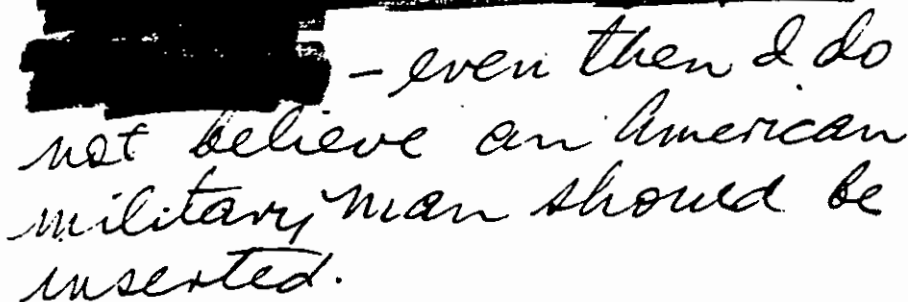 – even then I do
not believe an American
military man should be
inserted.